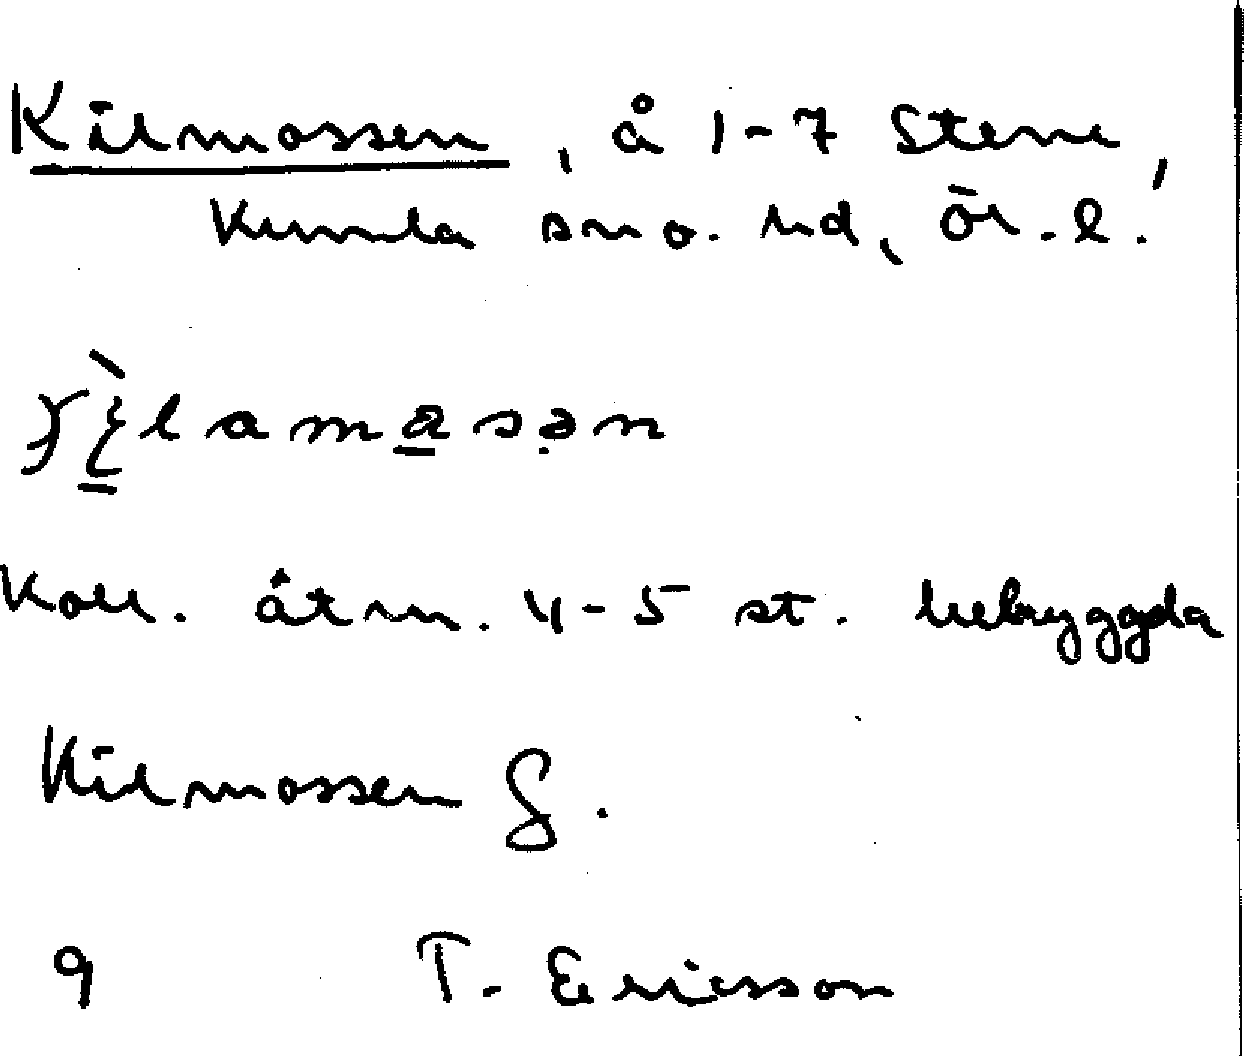 Kilmossen, å 1-7 Stene,
Kumla sn o. hd, Ör. l.
Koll. åtm. 4-5 st. bebyggda
Kilmossen G.
9 T. Ericsson